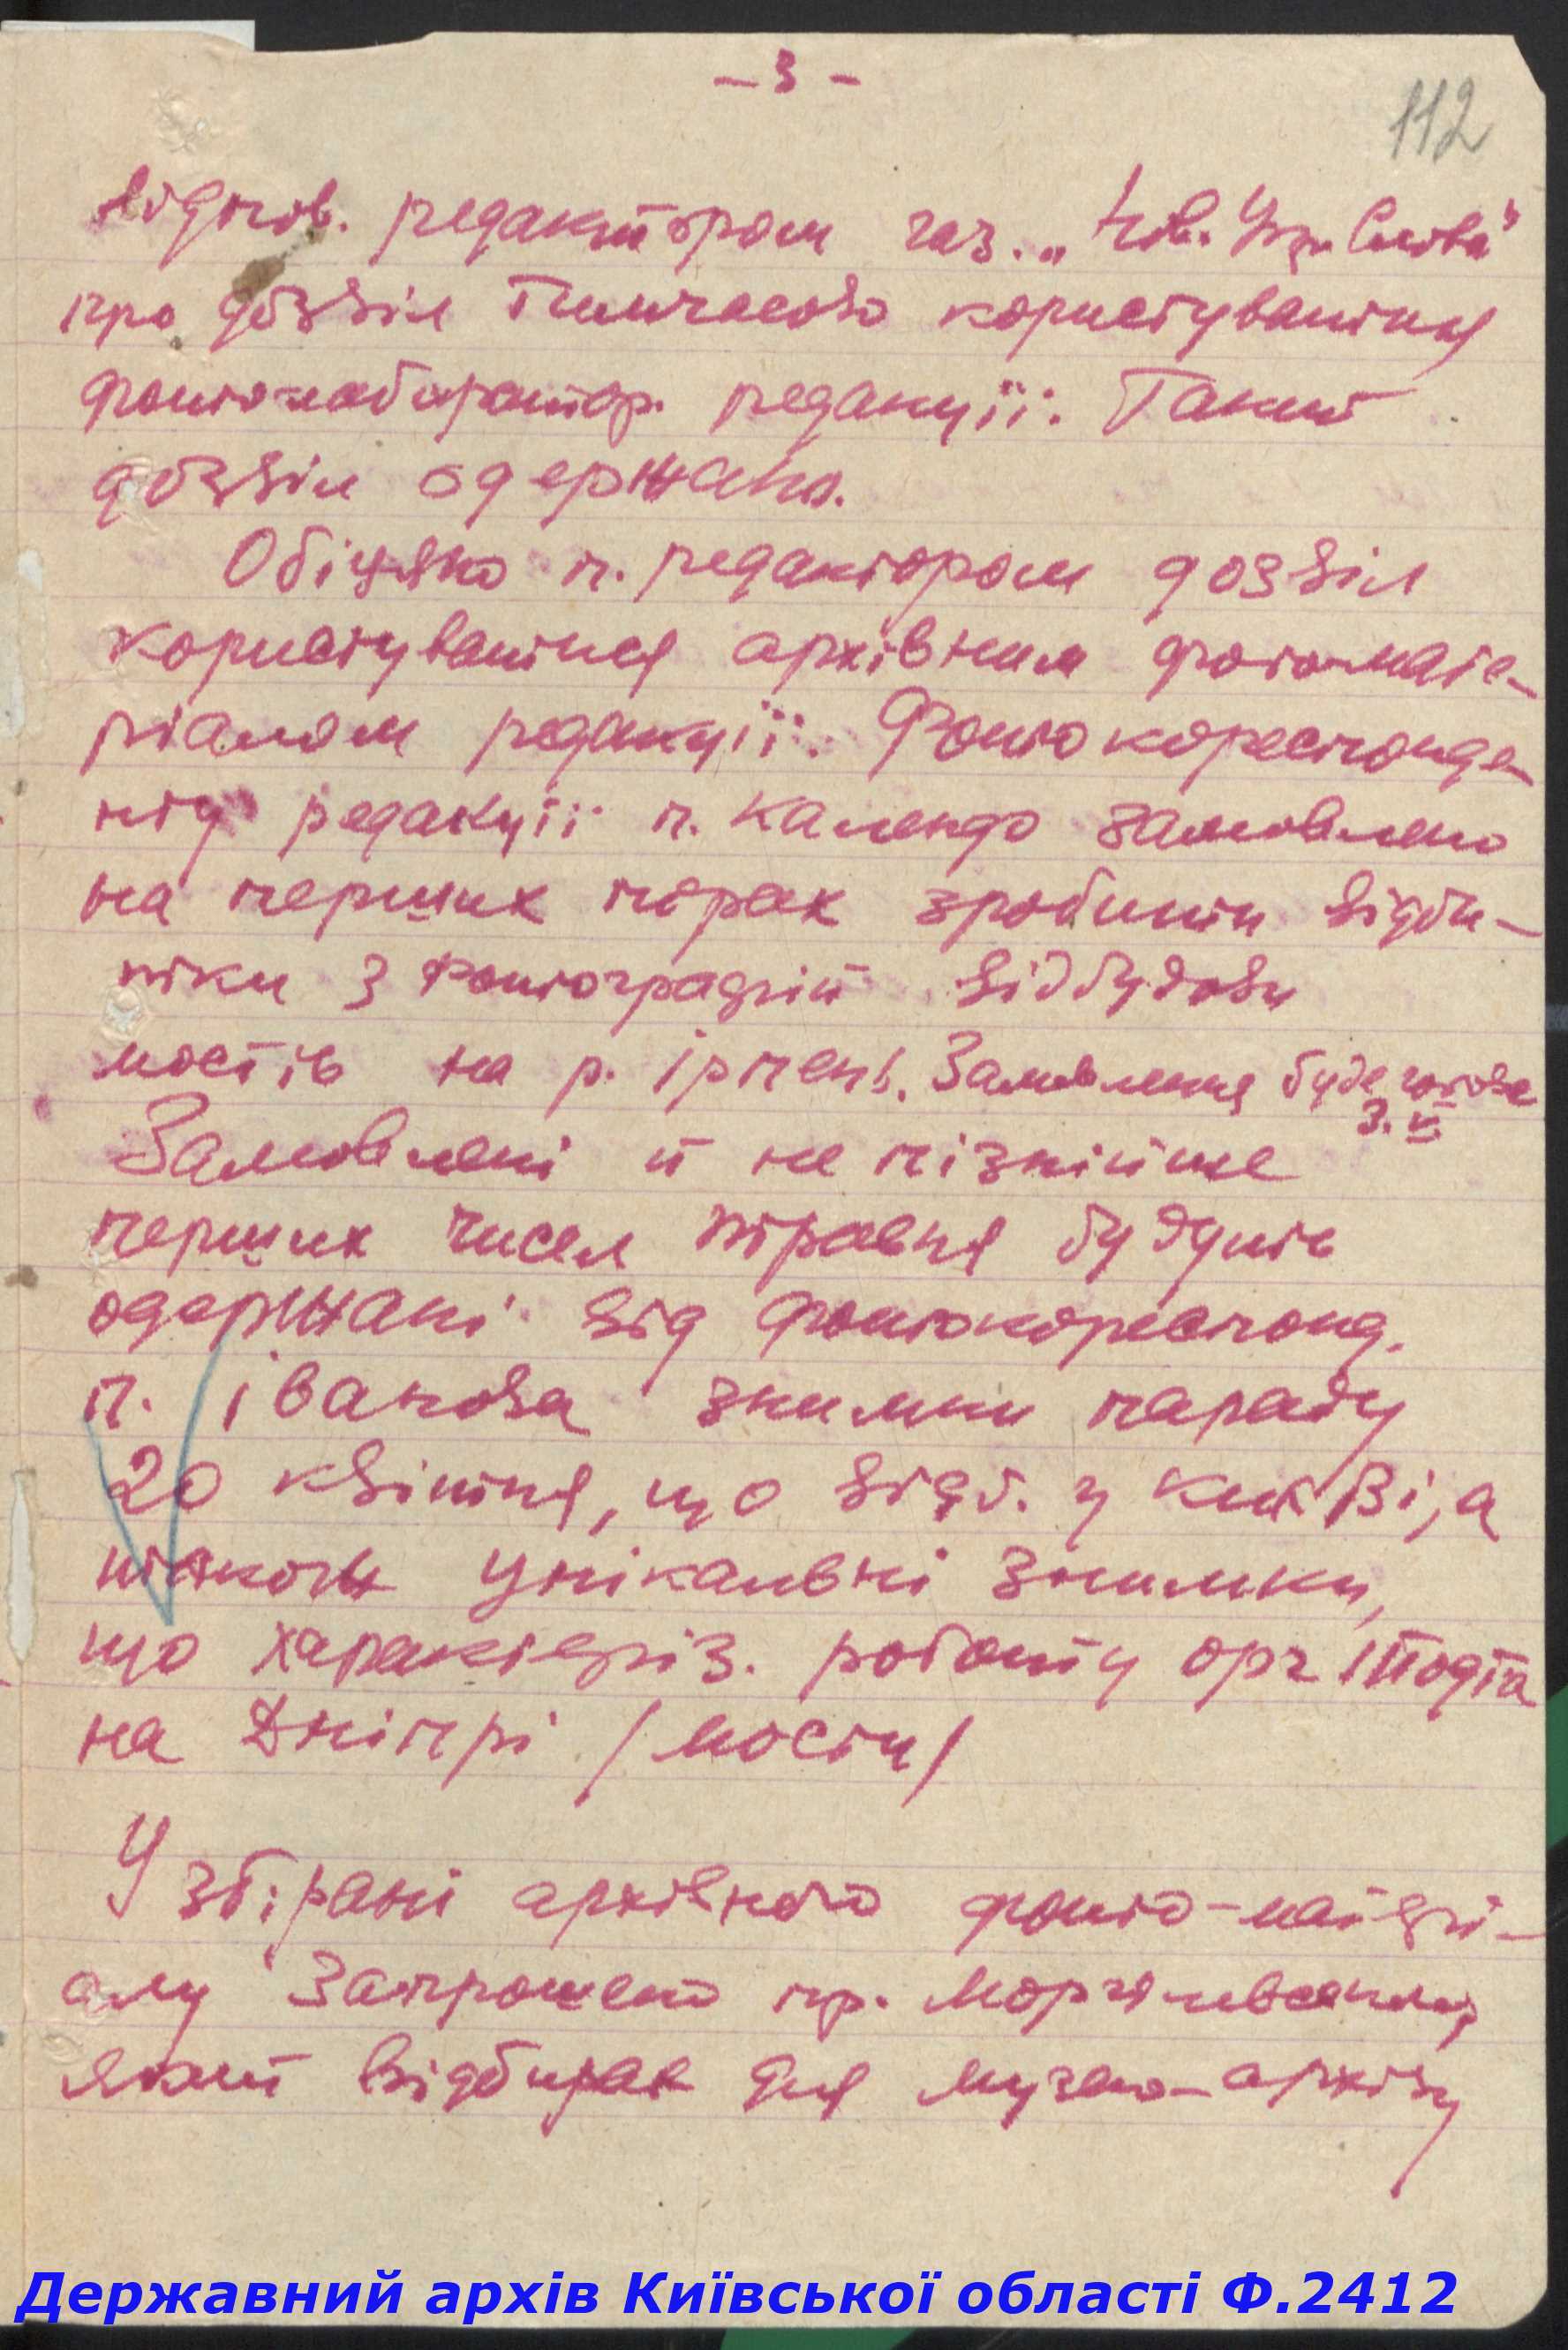 – 3 –
112
відпов. редактором газ. „Нов. Укр. Слова"
про дозвіл тимчасово користування
фото-лаборатор. редакції. Такий
дозвіл одержано.
Обіцяно п. редактором дозвіл
користування архівним фото-мате-
ріалом редакції. Фото кореспонде-
нту редакції п. замовлено
на перших порах зробити відби-
тки з фотографій відбудови
мостів на р. Ірпень. Замовлення буде готове
3. V.
Замовлені й не пізнійше
перших чисел травня будуть
одержані від фотокореспонд.
п. Іванова знимки параду
20 квітня, що відб. у Київі, а
також унікальні знимки,
що характеріз. роботу орг Тодта
на Дніпрі /мости/
У збірані архівного фото-матері-
алу запрошено пр.
який відбирав для музею-архіву
Державний архів Київської області Ф.2412